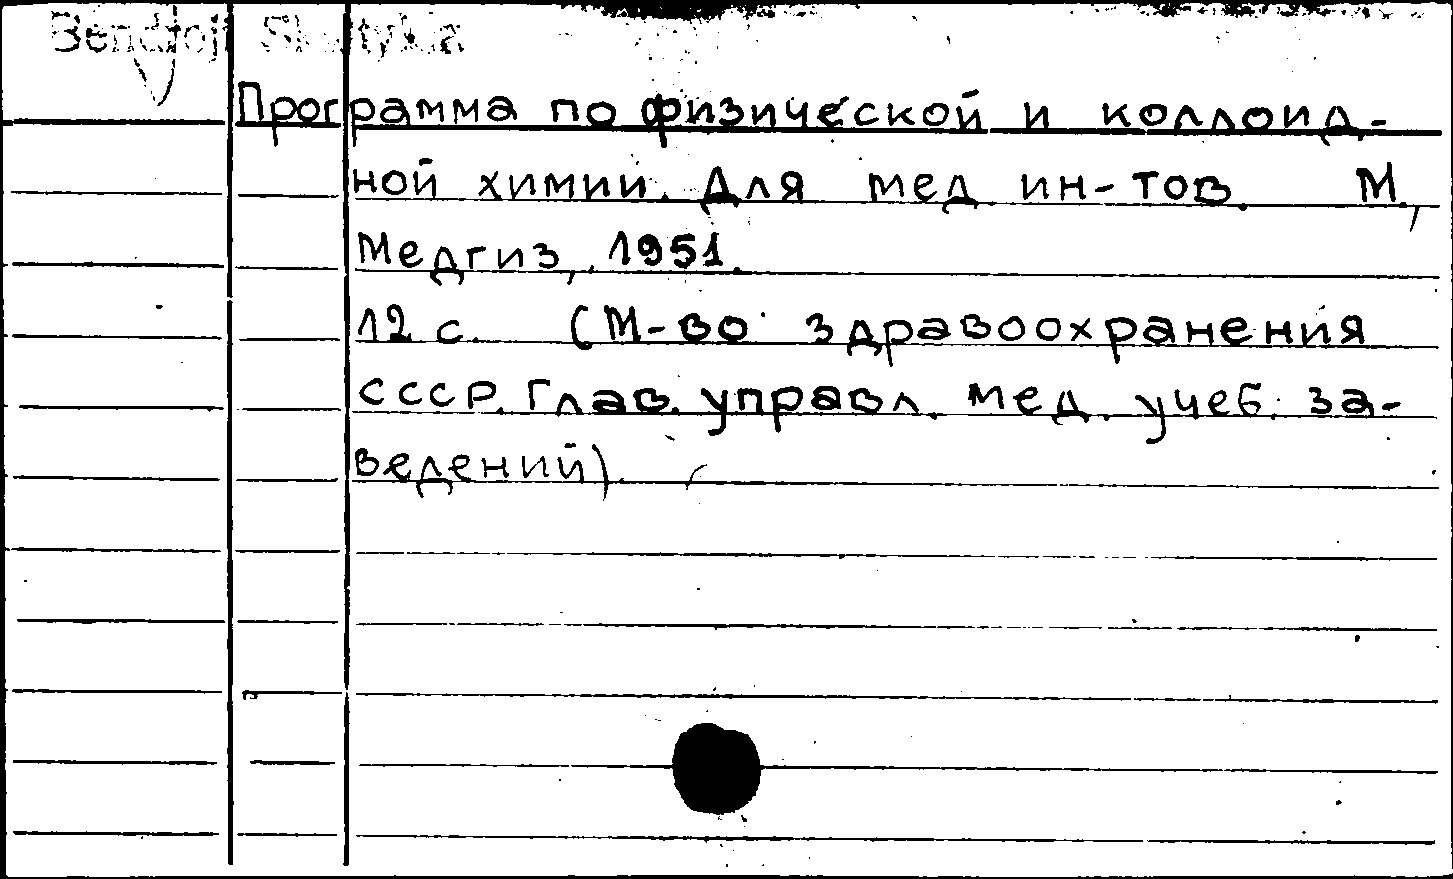 Bendroji Skaitykla
Программа по физической и коллоид-
ной химии. Для мед. ин-тов. М.,
Медгиз, 1951.
12 с. (М-во здравоохранения
СССР. Глав. управл. мед. учеб. за-
ведений).